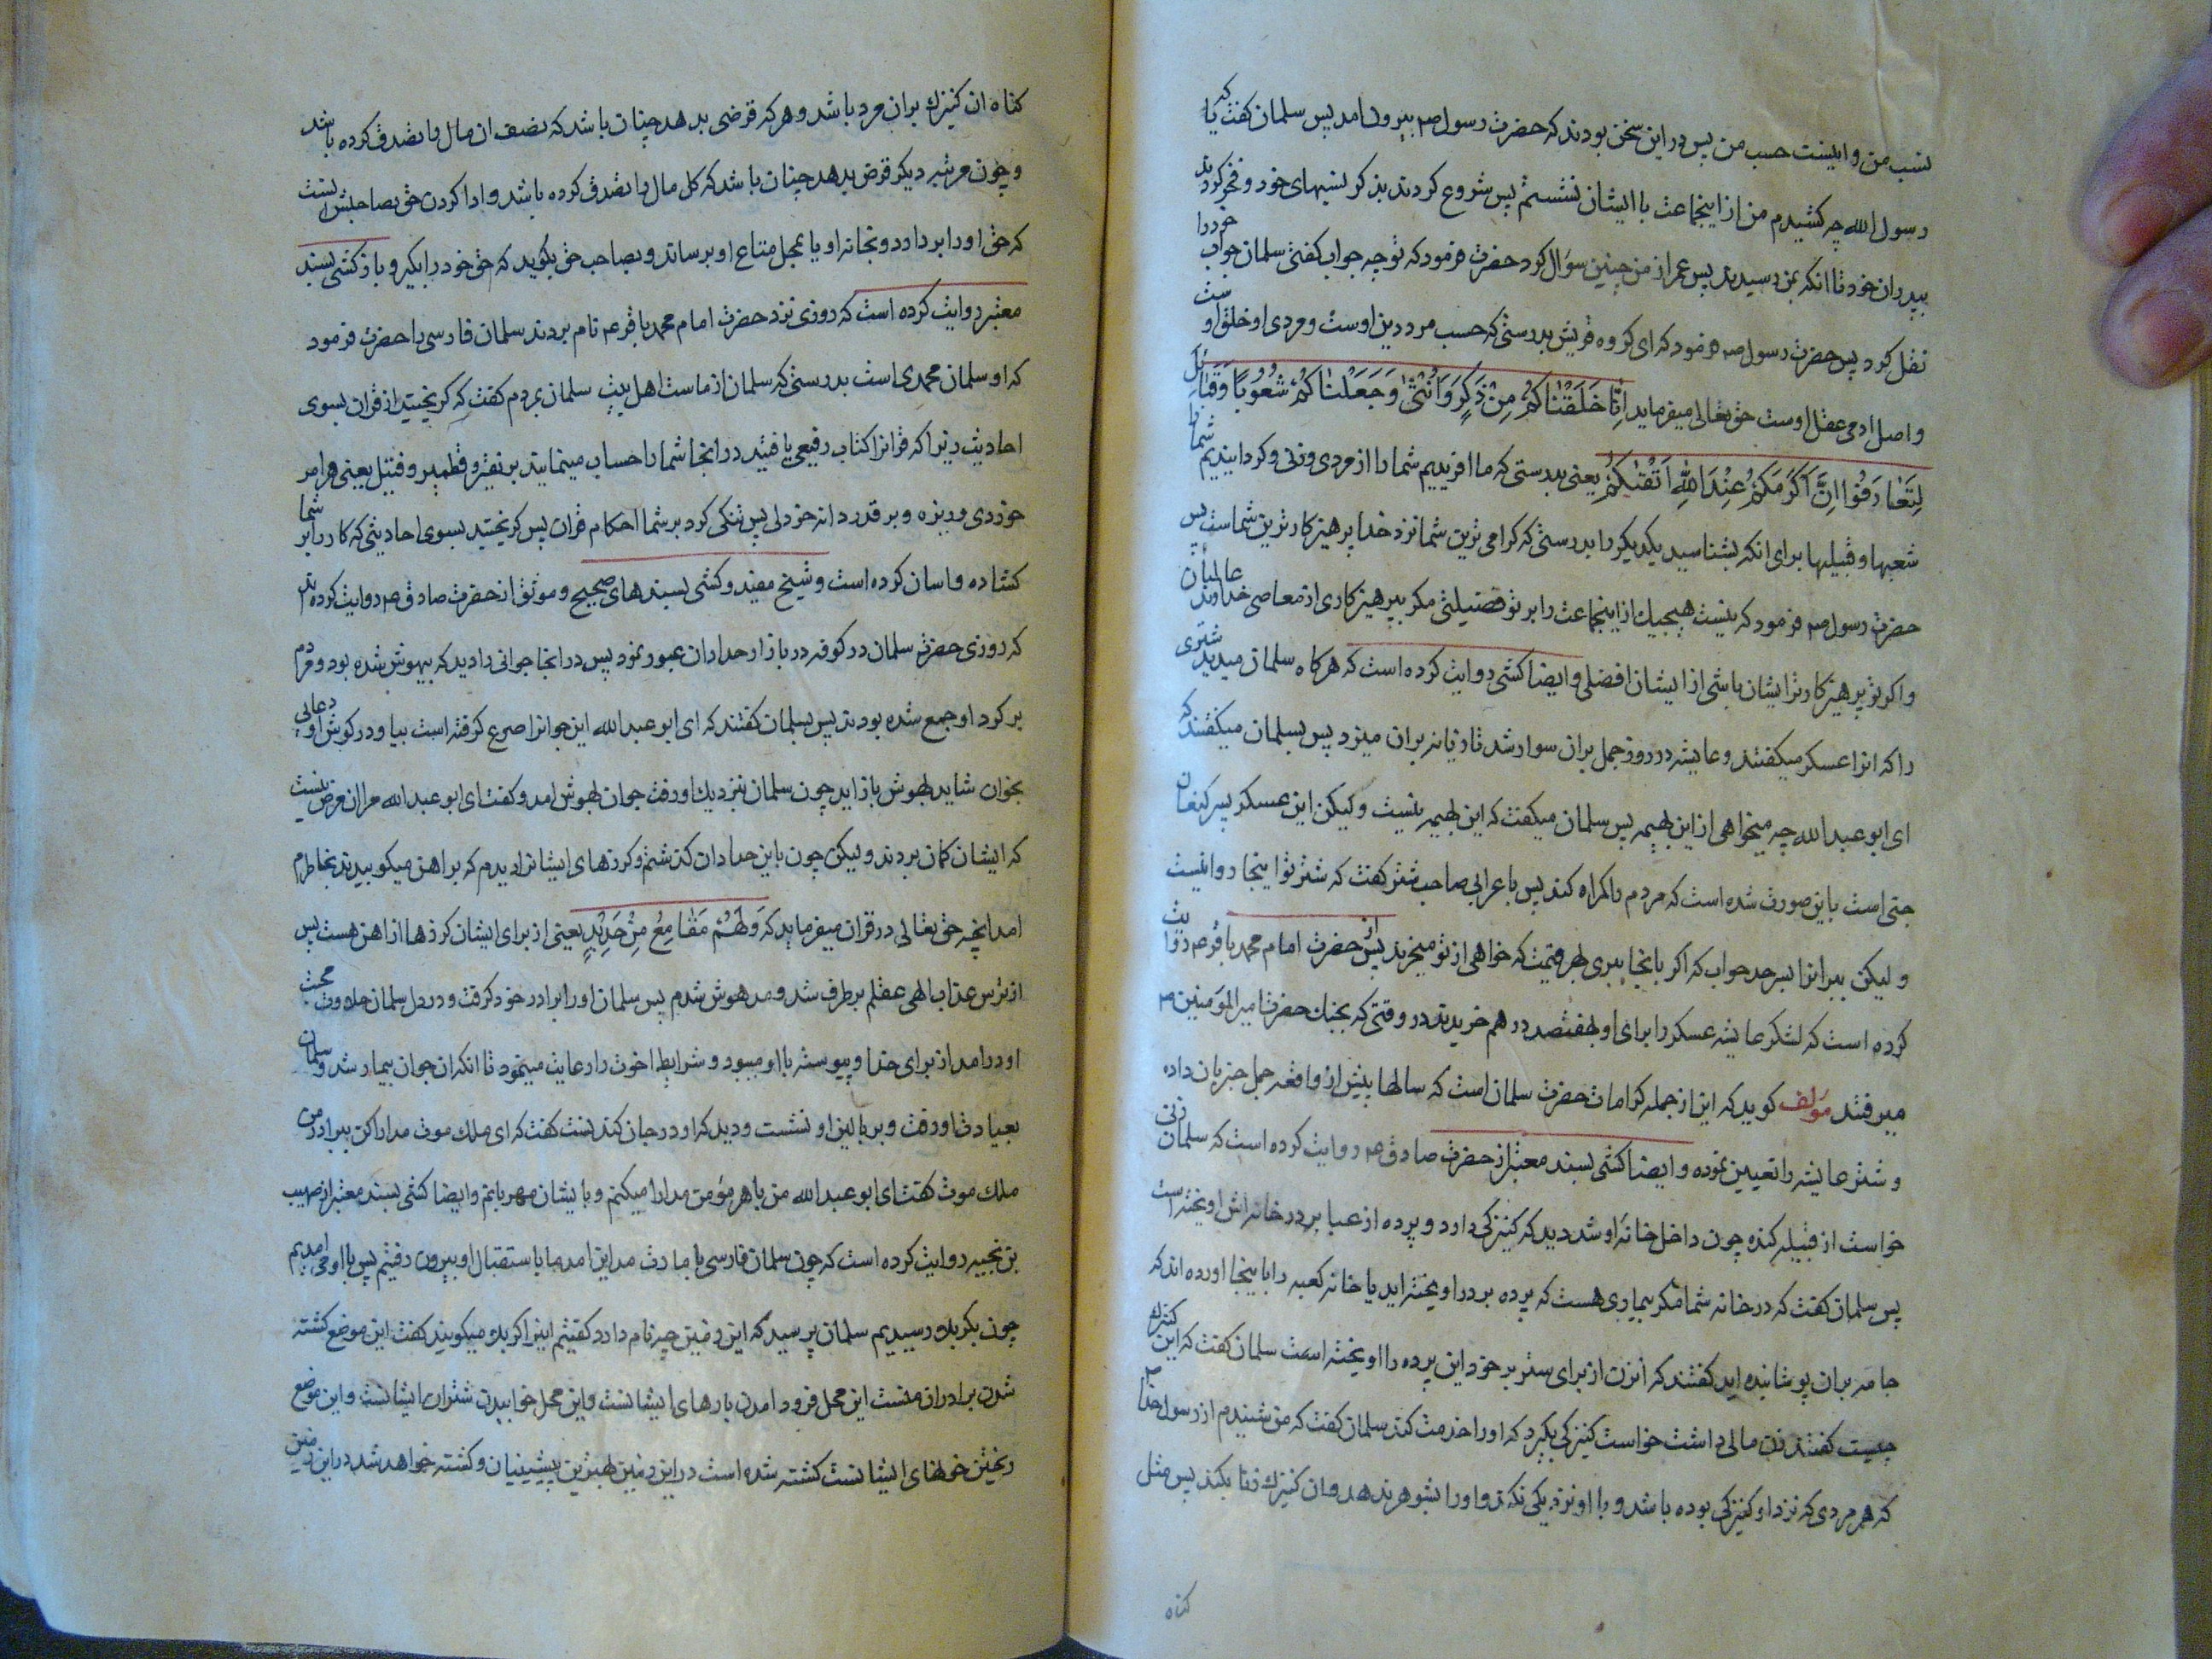 نسب من و اینست حسب من پس در این سخن بودند که حضرت رسول صم بیرون امد پس سلمان کفت که یا
رسول الله چه کشیدم من از اینجماعت با ایشان نشستم پس شروع کردند بذکر نسبهای خود و فخر کردند
بپدران خود تا انکه بمن رسیدند پس عمر از من چنین سؤال کرد حضرت فرمود که تو چه جواب کفتی سلمان جواب خود را
نقل کرد پس حضرت رسول صم فرمود که ای کروه قریش بدرستی که حسب مرد دین اوست و مردی او خلق اوست
و اصل ادمی عقل اوست حق تعالی میفرماید اِنّا خَلَقْناکُمْ مِنْ ذَکَرٍ وَ اُنْثیٰ وَ جَعَلْناکُمْ شُعُوبًا وَ قَبائِلَ
لِتَعٰارَفُوا اِنَّ اَکْرَمَکُمْ عِنْدَ اللّٰهِ اَتْقیٰکُمْ یعنی بدرستی که ما افریدیم شما را از مردی و زنی و کردانیدیم شما را
شعبها و قبیلها برای انکه بشناسید یکدیکر را بدرستی که کرامی ترین شما نزد خدا پرهیزکارترین شماست پس
حضرت رسول صم فرمود که نیست هیچیک از اینجماعت را بر تو فضیلتی مکر بپرهیزکاری از معاصی خداوند عالمیان
و اکر تو پرهیزکارتر از ایشان باشی از ایشان افضلی و ایضا کشی روایت کرده است که هرکاه سلمان میدید شتری
را که انرا عسکر میکفتند و عایشه در روز جمل بران سوار شد تازیانه بران میزد پس بسلمان میکفتند که
ای ابو عبد الله چه میخواهی از این بهیمه پس سلمان میکفت که این بهیمه نیست و لیکن این عسکر پسر کنعان
جنی است باین صورت شده است که مردم را کمراه کند پس باعرابی صاحب شتر کفت که شتر تو اینجا روا نیست
و لیکن ببر انرا بسر حد حواب که اکر بانجا ببری بهر قیمت که خواهی از تو میخرند پس از حضرت امام محمد باقر عم روایت
کرده است که لشکر عایشه عسکر را برای او بهفتصد درهم خریدند در وقتی که بجنك حضرت امیر المؤمنین عم
میرفتند مؤلف کوید که این از جمله کرامات حضرت سلمان است که سالها پیش از واقعه جمل خبر بان داده
و شتر عایشه را تعیین نموده و ایضا کشی بسند معتبر از حضرت صادق عم روایت کرده است که سلمان زنی
خواست از قبیله کنده چون داخل خانه او شد دید که کنیزکی دارد و پرده از عبا بر در خانه اش اویخته است
پس سلمان کفت که در خانه شما مکر بیماری هست که پرده بر در اویخته اید یا خانه کعبه را باینجا اورده اند که
جامه بران پوشانیده اید کفتند که انزن از برای ستر بر خود این پرده را اویخته است سلمان کفت که این کنیزك
چیست کفتند زن مالی داشت خواست کنیزکی بکیرد که او را خدمت کند سلمان کفت که من شنیدم از رسول خدا ص
که هر مردی که نزد او کنیزکی بوده باشد و با او نزدیکی نکند و او را بشوهر ندهد و ان کنیزك زنا بکند پس مثل
کناه
کناه ان کنیزك بران مرد باشد و هر که قرضی بدهد چنان باشد که نصف ان مال را تصدق کرده باشد
و چون مرتبه دیکر قرض بدهد چنان باشد که کل مال را تصدق کرده باشد و ادا کردن حق بصاحبش انست
که حق او را بردارد و بخانه او یا بمحل متاع او برساند و بصاحب حق بکوید که حق خود را بکیر و باز کشی بسند
معتبر روایت کرده است که روزی نزد حضرت امام محمد باقر عم نام بردند سلمان فارسی را حضرت فرمود
که او سلمان محمدی است بدرستی که سلمان از ماست اهل بیت سلمان بمردم کفت که کریختید از قران بسوی
احادیث زیرا که قرانرا کتاب رفیعی یافتید در انجا شما را حساب مینمایند بر نقیر و قطمیر و فتیل یعنی هر امر
خوردی و ریزه و بر قدر دانه خردلی پس تنکی کرد بر شما احکام قران پس کریختید بسوی احادیثی که کار را بر شما
کشاده و اسان کرده است و شیخ مفید و کشی بسندهای صحیح و موثق از حضرت صادق عم روایت کرده اند
که روزی حضرت سلمان در کوفه در بازار حدادان عبور نمود پس در انجا جوانی را دید که بیهوش شده بود و مردم
بر کرد او جمع شده بودند پس بسلمان کفتند که ای ابو عبد الله این جوانرا صرع کرفته است بیا و در کوش او دعائی
بخوان شاید بهوش باز اید چون سلمان بنزدیك او رفت جوان بهوش امد و کفت ای ابو عبد الله مرا ان مرض نیست
که ایشان کمان بردند و لیکن چون باین حدادان کذشتم و کرزهای ایشانرا دیدم که براهن میکوبیدند بخاطرم
امد انچه حق تعالی در قران میفرماید که وَ لَهُمْ مَقٰامِعُ مِنْ حَدِیدٍ یعنی از برای ایشان کرزها از اهن هست پس
از ترس عذاب الهی عقلم بر طرف شد و مدهوش شدم پس سلمان او را برادر خود کرفت و در دل سلمان حلاوت محبت
او در امد از برای خدا و پیوسته با او میبود و شرایط اخوت را رعایت مینمود تا انکه ان جوان بیمار شد و سلمان
بعیادت او رفت و بر بالین او نشست و دید که او در جان کندنست کفت که ای ملك موت مدارا کن ببرادر من
ملك موت کفت ای ابو عبد الله من با هر مؤمن مدارا میکنم و با ایشان مهربانم و ایضا کشی بسند معتبر از مسیب
بن نجبه روایت کرده است که چون سلمان فارسی بامارت مداین امد ما باستقبال او بیرون رفتیم پس با او می امدیم
چون بکربلا رسیدیم سلمان پرسید که این زمین چه نام دارد کفتیم اینرا کربلا میکویند کفت این موضع کشته
شدن برادران منست این محل فرود امدن بارهای ایشانست و این محل خوابیدن شتران ایشانست و این موضع
ریختن خونهای ایشانست کشته شده است در این زمین بهترین پیشینیان و کشته خواهد شد در این زمین